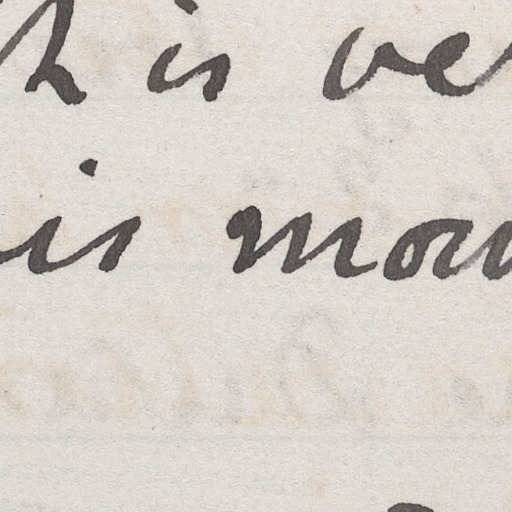 h is ve
is mou